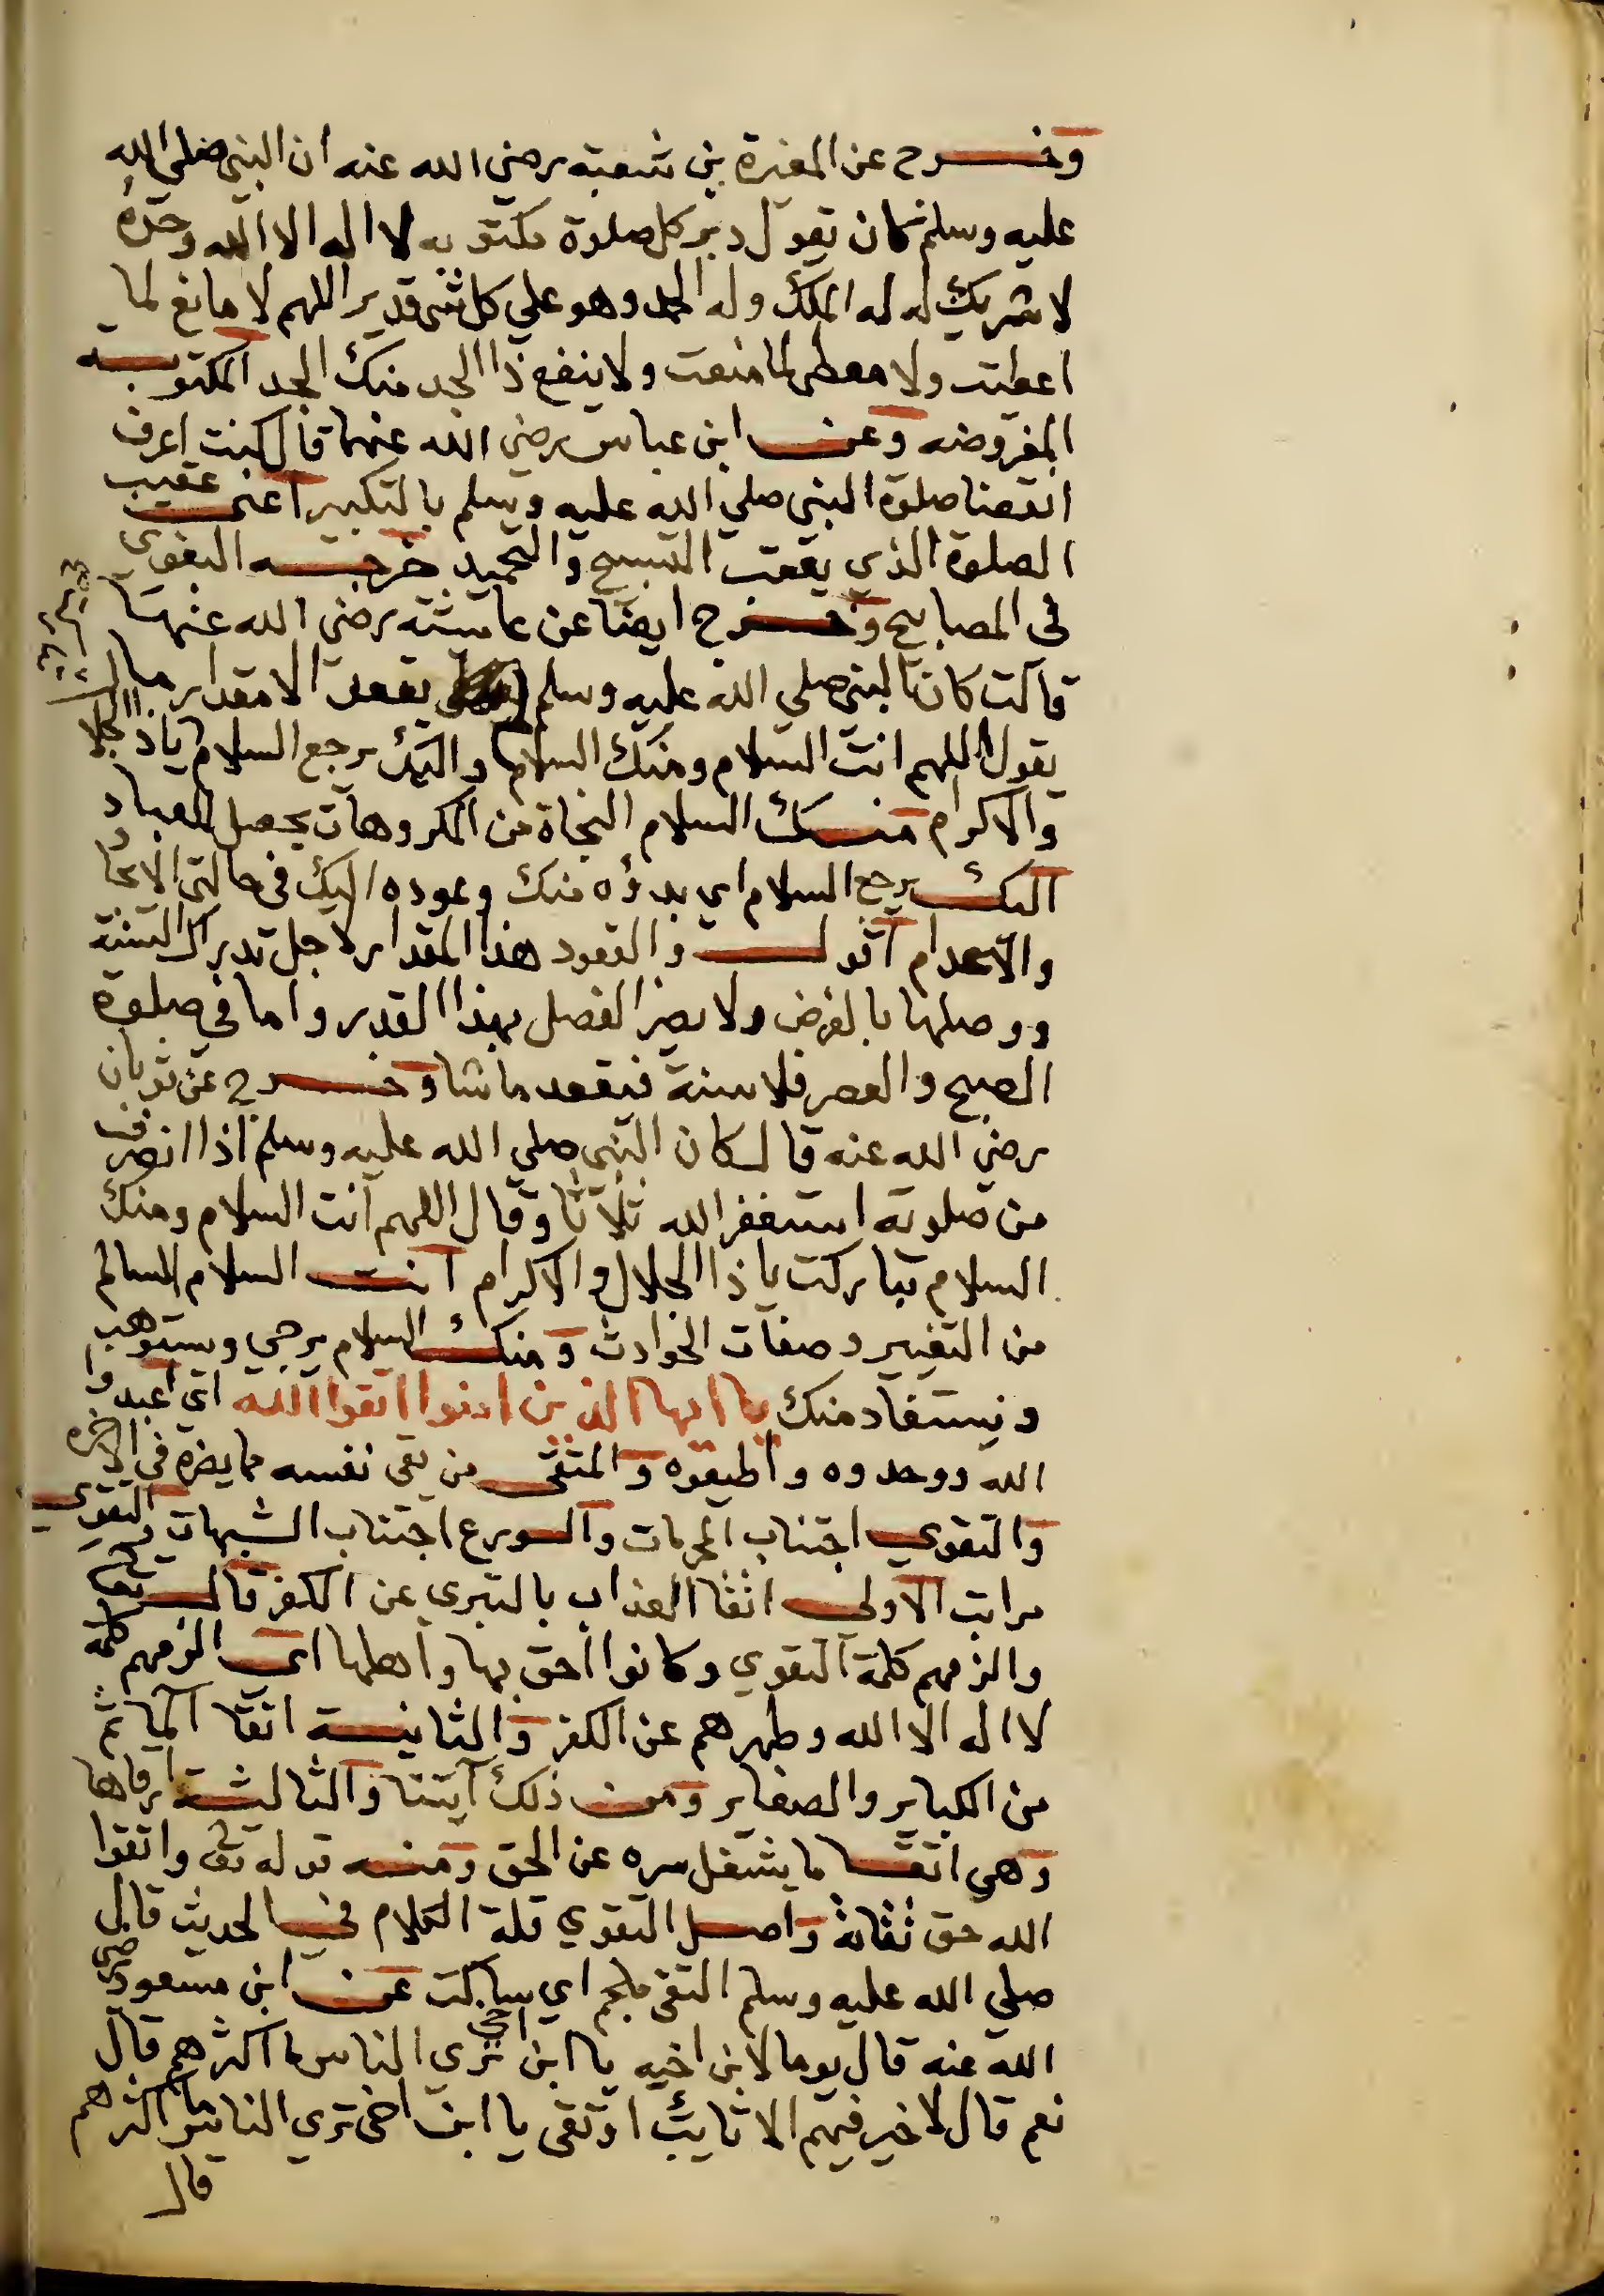 وخرج عن المغيرة بن شعبة رضي الله عنه ان النبي صلي الله
عليه وسلم كان يقول دبر كل صلوة مكتوبه لا اله الا الله وحده
لا شريك له له الملك وله الحمد وهو علي كل شي قدير اللهم لا مانع لما
اعطيت ولا معطي لما منعت ولا ينفع ذا الجد منك الجد المكتوبة
المفروضه وعن ابن عباس رضي الله عنهما قال كنت اعرف
انقضا صلوة النبي صلي الله عليه وسلم بالتكبير اعني عقيب
الصلوة الذي يعقب التسبيح والتحميد خرجه البغوي
في المصابيح وخرج ايضا عن عايشة رضي الله عنها
قالت كان النبي صلي الله عليه وسلم يقعد الا مقدار ما
يقول اللهم انت السلام ومنك السلام واليك يرجع السلام ياذا الجلال
والاكرام منك السلام النجاة من المكروهات يحصل للعباد
اليك يرجع السلام اي بدؤه منك وعوده اليك في حالتي الايجاد
والاعدام اقول والقعود هذا المقدار لاجل تدارك السنة
ووصلها بالفرض ولا يضر الفصل بهذا القدر واما في صلوة
الصبح والعصر فلا سنة فيقعد ما شا وخرج عن ثوبان
رضي الله عنه قال كان النبي صلي الله عليه وسلم اذا انصرف
من صلوته استغفر الله ثلاثا وقال اللهم انت السلام ومنك
السلام تباركت ياذا الجلال والاكرام انت السلام السالم
من التغيير وصفات الحوادث ومنك السلام يرجي ويستوهب
ويستفاد منك يا ايها الذين امنوا اتقوا الله اي اعبدوا
الله ووحدوه واطيعوه والمتقي من يقي نفسه مما يضره في الاخرة
والتقوي اجتناب المحرمات والورع اجتناب الشبهات والتقوي
مراتب الاولي اتقا العذاب بالتبري عن الكفر قال تعا
والزمهم كلمة التقوي وكانوا احق بها واهلها اي الزمهم كلمة
لا اله الا الله وطهرهم عن الكفر والثانية اتقا المآثم
من الكباير والصغاير ومن ذلك آيتنا والثالثة ارقاها
وهي اتقا ما يشغل سره عن الحق ومنه قوله تع واتقوا
الله حق تقاته واصل التقوي قلة الكلام في الحديث قال
صلي الله عليه وسلم التقي ملجم اي ساكت عن ابن مسعود رضي
الله عنه قال يوما لابن اخيه يا ابن اخي تري الناس ما اكثرهم قال
نعم قال لا خير فيهم الا تايب او تقي يا ابن اخي تري الناس ما اكثرهم
قال